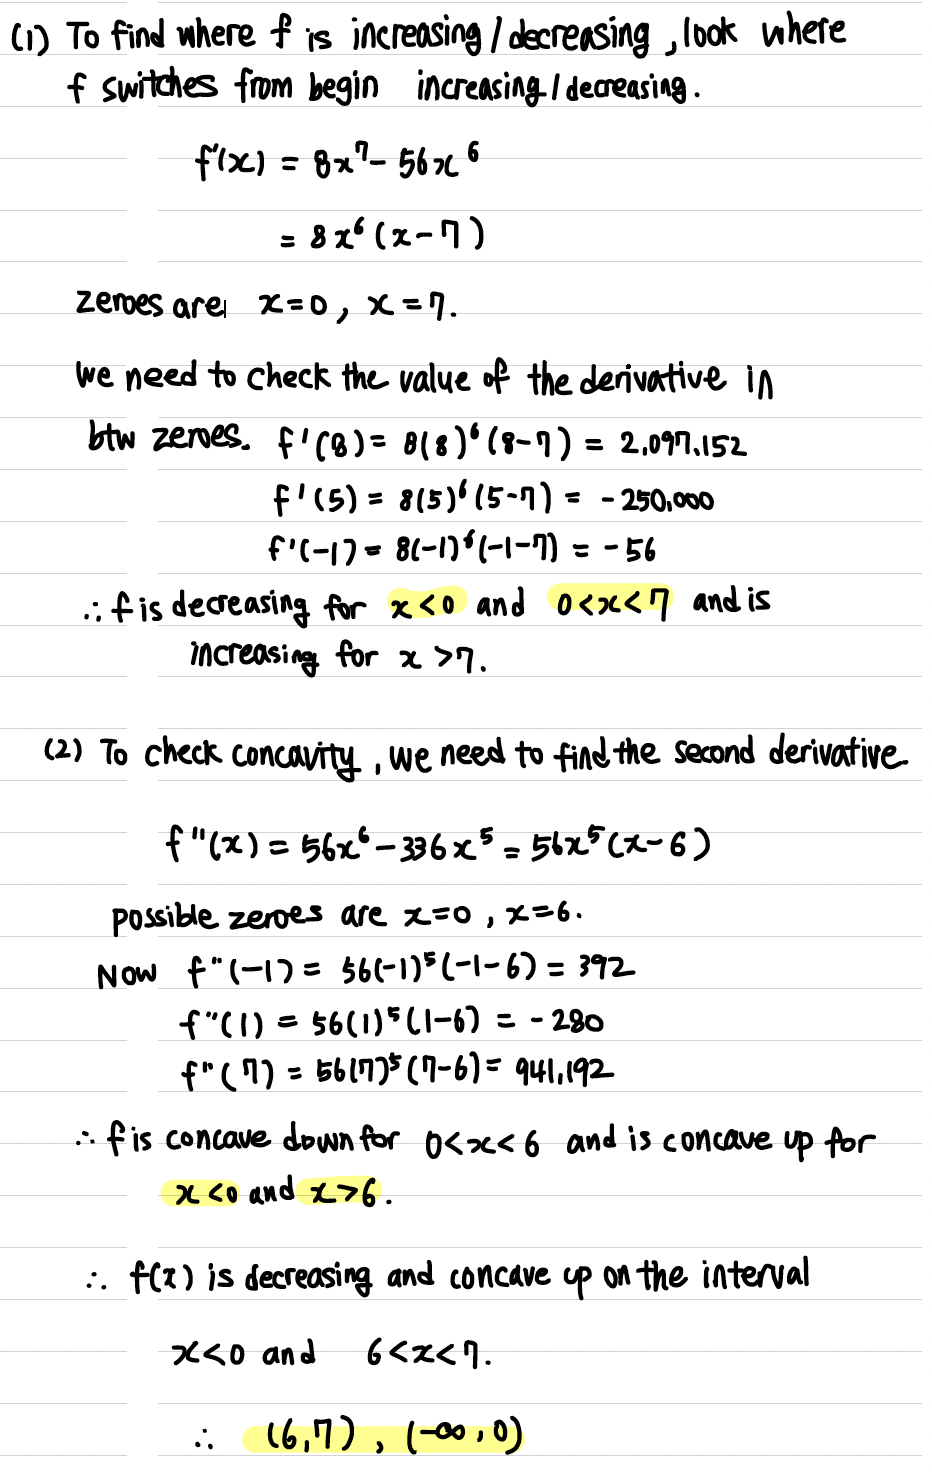 (1) To find where f is increasing / decreasing , look where
f switches from begin increasing / decreasing.
f'(x) = 8x⁷ - 56x⁶
= 8x⁶ (x-7)
zeroes are x=0 , x=7.
We need to check the value of the derivative in
btw zeroes. f'(8) = 8(8)⁶(8-7) = 2,097,152
f'(5) = 8(5)⁶(5-7) = -250,000
f'(-1) = 8(-1)⁶(-1-7) = -56
∴ f is decreasing for x<0 and 0<x<7 and is
increasing for x>7.
(2) To check concavity , we need to find the second derivative.
f''(x) = 56x⁶ - 336x⁵ = 56x⁵(x-6)
possible zeroes are x=0 , x=6.
Now f''(-1) = 56(-1)⁵(-1-6) = 392
f''(1) = 56(1)⁵(1-6) = -280
f''(7) = 56(7)⁵(7-6) = 941,192
∴ f is concave down for 0<x<6 and is concave up for
x<0 and x>6.
∴ f(x) is decreasing and concave up on the interval
x<0 and 6<x<7.
∴ (6,7) , (-∞,0)